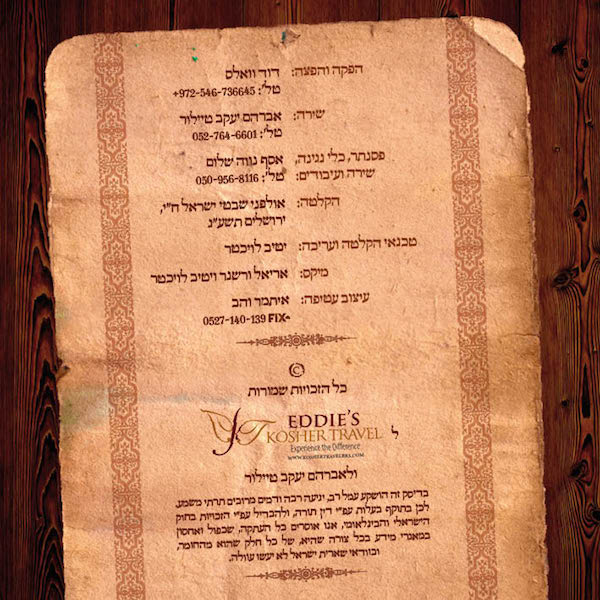 הפקה והפצה: דוד וואלס
טל': +972-546-736645
שירה: אברהם יעקב טיילור
טל': 052-764-6601
פסנתר, כלי נגינה, אסף נווה שלום
שירה ועיבודים: טל': 050-956-8116
הקלטה: אולפני שבטי ישראל ח"י,
ירושלים תשע"ג
טכנאי הקלטה ועריכה: יטיב לויכטר
מיקס: אריאל ורשנר ויטיב לויכטר
עיצוב עטיפה: איתמר והב
0527-140-139 FIX
©
כל הזכויות שמורות
ל EDDIE'S
KOSHER TRAVEL
Experience the Difference
WWW.KOSHERTRAVELERS.COM
ולאברהם יעקב טיילור
בדיסק זה הושקע עמל רב, יגיעה רבה ודמים מרובים תרתי משמע,
לכן בתוקף בעלות עפ"י דין תורה, ולהבדיל עפ"י הזכויות בחוק
הישראלי והבינלאומי, אנו אוסרים כל העתקה, שכפול ואחסון
במאגרי מידע בכל צורה שהיא, של כל חלק שהוא מהחומר,
ובוודאי שארית ישראל לא יעשו עוולה.